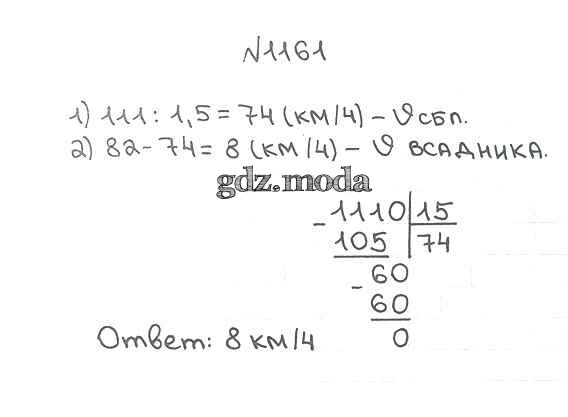 №1161
1) 111 : 1,5 = 74 (км/ч) – υ сбл.
2) 82 – 74 = 8 (км/ч) – υ всадника.
gdz.moda
- 1110 | 15
105 | 74
- 60
60
0
Ответ: 8 км/ч